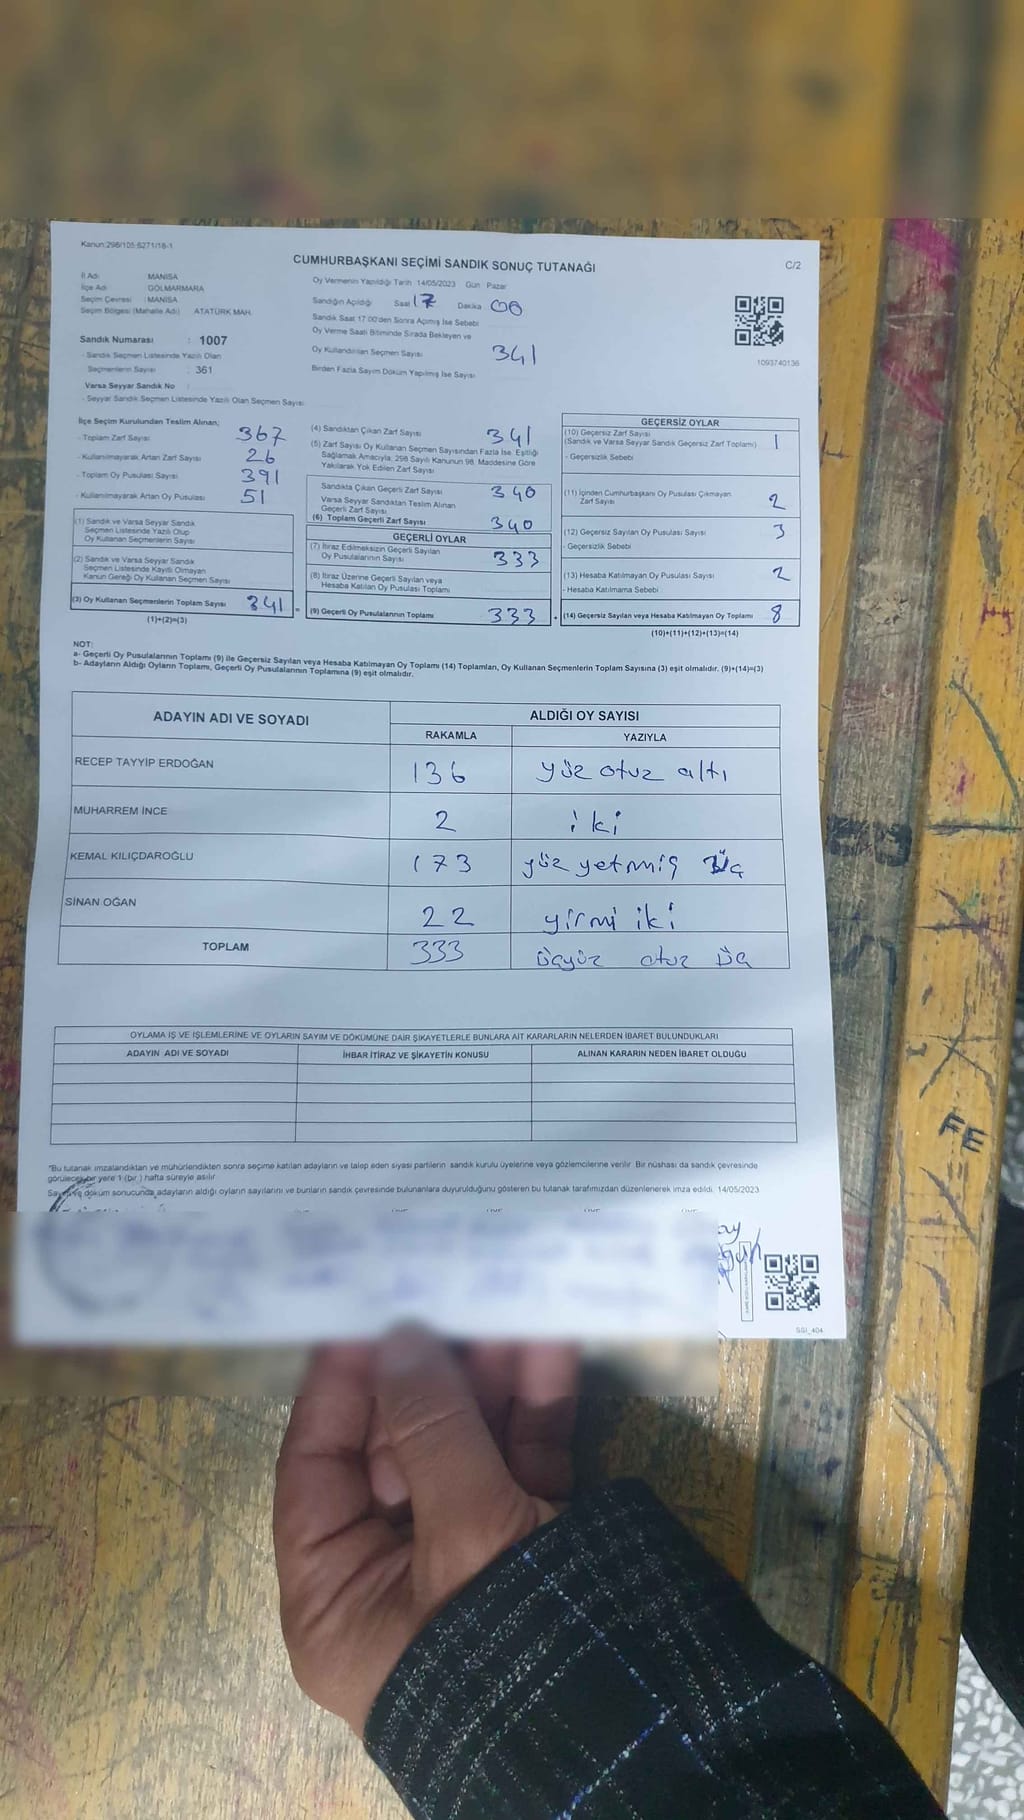 Kanun:298/105;6271/18-1
CUMHURBAŞKANI SEÇİMİ SANDIK SONUÇ TUTANAĞI
C/2
İl Adı MANİSA
İlçe Adı GÖLMARMARA
Seçim Çevresi : MANİSA
Seçim Bölgesi (Mahalle Adı) ATATÜRK MAH.
Oy Vermenin Yapıldığı Tarih 14/05/2023 Gün Pazar
Sandığın Açıldığı Saat 17 Dakika 08
Sandık Saat 17:00'den Sonra Açımış İse Sebebi
Oy Verme Saati Bitiminde Sırada Bekleyen ve
Oy Kullandırılan Seçmen Sayısı 341
Birden Fazla Sayım Döküm Yapılmış İse Sayısı
1093740136
Sandık Numarası : 1007
- Sandık Seçmen Listesinde Yazılı Olan
Seçmenlerin Sayısı : 361
Varsa Seyyar Sandık No :
- Seyyar Sandık Seçmen Listesinde Yazılı Olan Seçmen Sayısı
İlçe Seçim Kurulundan Teslim Alınan;
- Toplam Zarf Sayısı 367
- Kullanılmayarak Artan Zarf Sayısı 26
- Toplam Oy Pusulası Sayısı 391
- Kullanılmayarak Artan Oy Pusulası 51
(1) Sandık ve Varsa Seyyar Sandık
Seçmen Listesinde Yazılı Olup
Oy Kullanan Seçmenlerin Sayısı
(2) Sandık ve Varsa Seyyar Sandık
Seçmen Listesinde Kayıtlı Olmayan
Kanun Gereği Oy Kullanan Seçmen Sayısı
(3) Oy Kullanan Seçmenlerin Toplam Sayısı 341 =
(1)+(2)=(3)
(4) Sandıktan Çıkan Zarf Sayısı 341
(5) Zarf Sayısı Oy Kullanan Seçmen Sayısından Fazla İse, Eşitliği
Sağlamak Amacıyla, 298 Sayılı Kanunun 98. Maddesine Göre
Yakılarak Yok Edilen Zarf Sayısı
Sandıkta Çıkan Geçerli Zarf Sayısı 340
Varsa Seyyar Sandıktan Teslim Alınan
Geçerli Zarf Sayısı
(6) Toplam Geçerli Zarf Sayısı 340
GEÇERLİ OYLAR
(7) İtiraz Edilmeksizin Geçerli Sayılan
Oy Pusulalarının Sayısı 333
(8) İtiraz Üzerine Geçerli Sayılan veya
Hesaba Katılan Oy Pusulası Toplamı
(9) Geçerli Oy Pusulalarının Toplamı 333 +
GEÇERSİZ OYLAR
(10) Geçersiz Zarf Sayısı
(Sandık ve Varsa Seyyar Sandık Geçersiz Zarf Toplamı) 1
- Geçersizlik Sebebi
(11) İçinden Cumhurbaşkanı Oy Pusulası Çıkmayan
Zarf Sayısı 2
(12) Geçersiz Sayılan Oy Pusulası Sayısı 3
- Geçersizlik Sebebi
(13) Hesaba Katılmayan Oy Pusulası Sayısı 2
- Hesaba Katılmama Sebebi
(14) Geçersiz Sayılan veya Hesaba Katılmayan Oy Toplamı 8
(10)+(11)+(12)+(13)=(14)
NOT:
a- Geçerli Oy Pusulalarının Toplamı (9) ile Geçersiz Sayılan veya Hesaba Katılmayan Oy Toplamı (14) Toplamları, Oy Kullanan Seçmenlerin Toplam Sayısına (3) eşit olmalıdır. (9)+(14)=(3)
b- Adayların Aldığı Oyların Toplamı, Geçerli Oy Pusulalarının Toplamına (9) eşit olmalıdır.
ADAYIN ADI VE SOYADI ALDIĞI OY SAYISI
RAKAMLA YAZIYLA
RECEP TAYYİP ERDOĞAN 136 yüz otuz altı
MUHARREM İNCE 2 iki
KEMAL KILIÇDAROĞLU 173 yüz yetmiş üç
SİNAN OĞAN 22 yirmi iki
TOPLAM 333 üçyüz otuz üç
OYLAMA İŞ VE İŞLEMLERİNE VE OYLARIN SAYIM VE DÖKÜMÜNE DAİR ŞİKAYETLERLE BUNLARA AİT KARARLARIN NELERDEN İBARET BULUNDUKLARI
ADAYIN ADI VE SOYADI İHBAR İTİRAZ VE ŞİKAYETİN KONUSU ALINAN KARARIN NEDEN İBARET OLDUĞU
"Bu tutanak imzalandıktan ve mühürlendikten sonra seçime katılan adayların ve talep eden siyasi partilerin sandık kurulu üyelerine veya gözlemcilerine verilir. Bir nüshası da sandık çevresinde
görülecek bir yere 1 (bir ) hafta süreyle asılır
Sayım ve döküm sonucunda adayların aldığı oyların sayılarını ve bunların sandık çevresinde bulunanlara duyurulduğunu gösteren bu tutanak tarafımızdan düzenlenerek imza edildi. 14/05/2023
SSI_404
FE